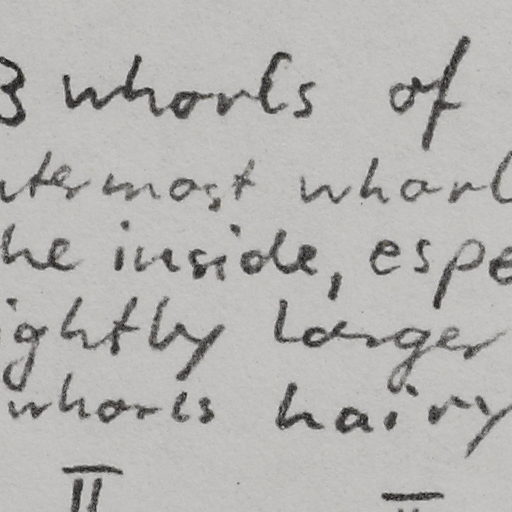 3 whorls of
utermost whorl
he inside, espe
ightly larger
whorls hairy
II